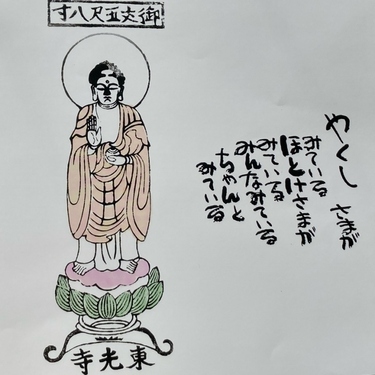 御丈五尺八寸
やくし さまが
みている
ほとけさまが
みている
みんなみている
ちゃんと
みている
東光寺